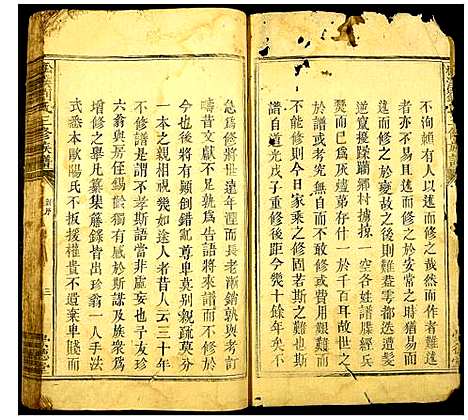 不洵賴有人以述而修之哉然而作者難述
者亦不易且述而修之於安常之時猶易而
述而修之於變故之後則難蓋粵都迭遭髮
逆竄擾蹂躪鄉村擄掠一空各姓譜牒經兵
燹而已為灰燼苐存什一於千百耳故世之
不能修則今日家乘之修固若斯之艱難而
譜自道光戊子重修後距今幾十餘年矣不
急為修將世遠年湮而長老漸銷孰與考訂
疇昔文獻不足孰為告語將來譜而不修於
今也後將有顛倒錯亂尊卑莫別親疏莫分
本一之親相視幾如途人者昔人云三十年
不修譜謂之不孝斯語當非虛妄也予于歲
六翁與房任錫於獨有感於斯謀及族衆為
增修之舉凡纂集謄錄皆出珍翁一人手法
式悉本歐陽氏不扳援權貴不遺棄卑賤而
三修族譜
三